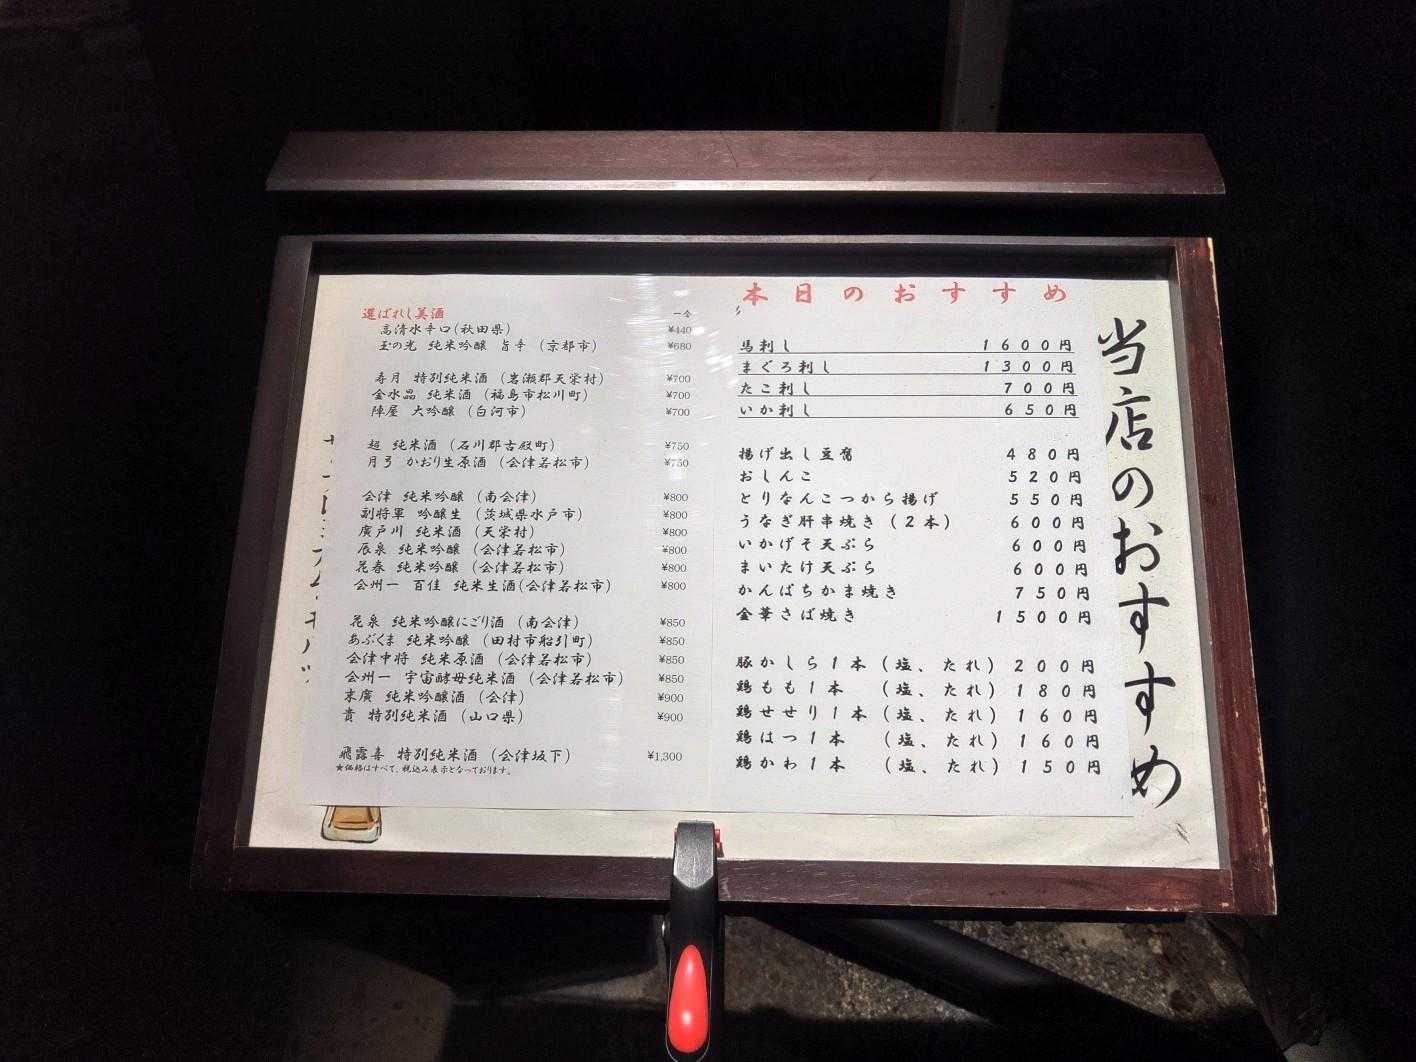 選ばれし美酒 一合
高清水辛口(秋田県) ¥440
玉の光 純米吟醸 旨辛 (京都市) ¥680
寿月 特別純米酒 (岩瀬郡天栄村) ¥700
金水晶 純米酒 (福島市松川町) ¥700
陣屋 大吟醸 (白河市) ¥700
超 純米酒 (石川郡古殿町) ¥750
月弓 かおり生原酒 (会津若松市) ¥750
会津 純米吟醸 (南会津) ¥800
副将軍 吟醸生 (茨城県水戸市) ¥800
廣戸川 純米酒 (天栄村) ¥800
辰泉 純米吟醸 (会津若松市) ¥800
花春 純米吟醸 (会津若松市) ¥800
会州一 百佳 純米生酒(会津若松市) ¥800
花泉 純米吟醸にごり酒 (南会津) ¥850
あぶくま 純米吟醸 (田村市船引町) ¥850
会津中将 純米原酒 (会津若松市) ¥850
会州一 宇宙酵母純米酒 (会津若松市) ¥850
末廣 純米吟醸酒 (会津) ¥900
貴 特別純米酒 (山口県) ¥900
飛露喜 特別純米酒 (会津坂下) ¥1,300
★価格はすべて、税込み表示となっております。
本日のおすすめ
馬刺し 1600円
まぐろ刺し 1300円
たこ刺し 700円
いか刺し 650円
揚げ出し豆腐 480円
おしんこ 520円
とりなんこつから揚げ 550円
うなぎ肝串焼き(2本) 600円
いかげそ天ぷら 600円
まいたけ天ぷら 600円
かんぱちかま焼き 750円
金華さば焼き 1500円
豚かしら1本(塩、たれ) 200円
鶏もも1本 (塩、たれ) 180円
鶏せせり1本(塩、たれ) 160円
鶏はつ1本 (塩、たれ) 160円
鶏かわ1本 (塩、たれ) 150円
当店のおすすめ